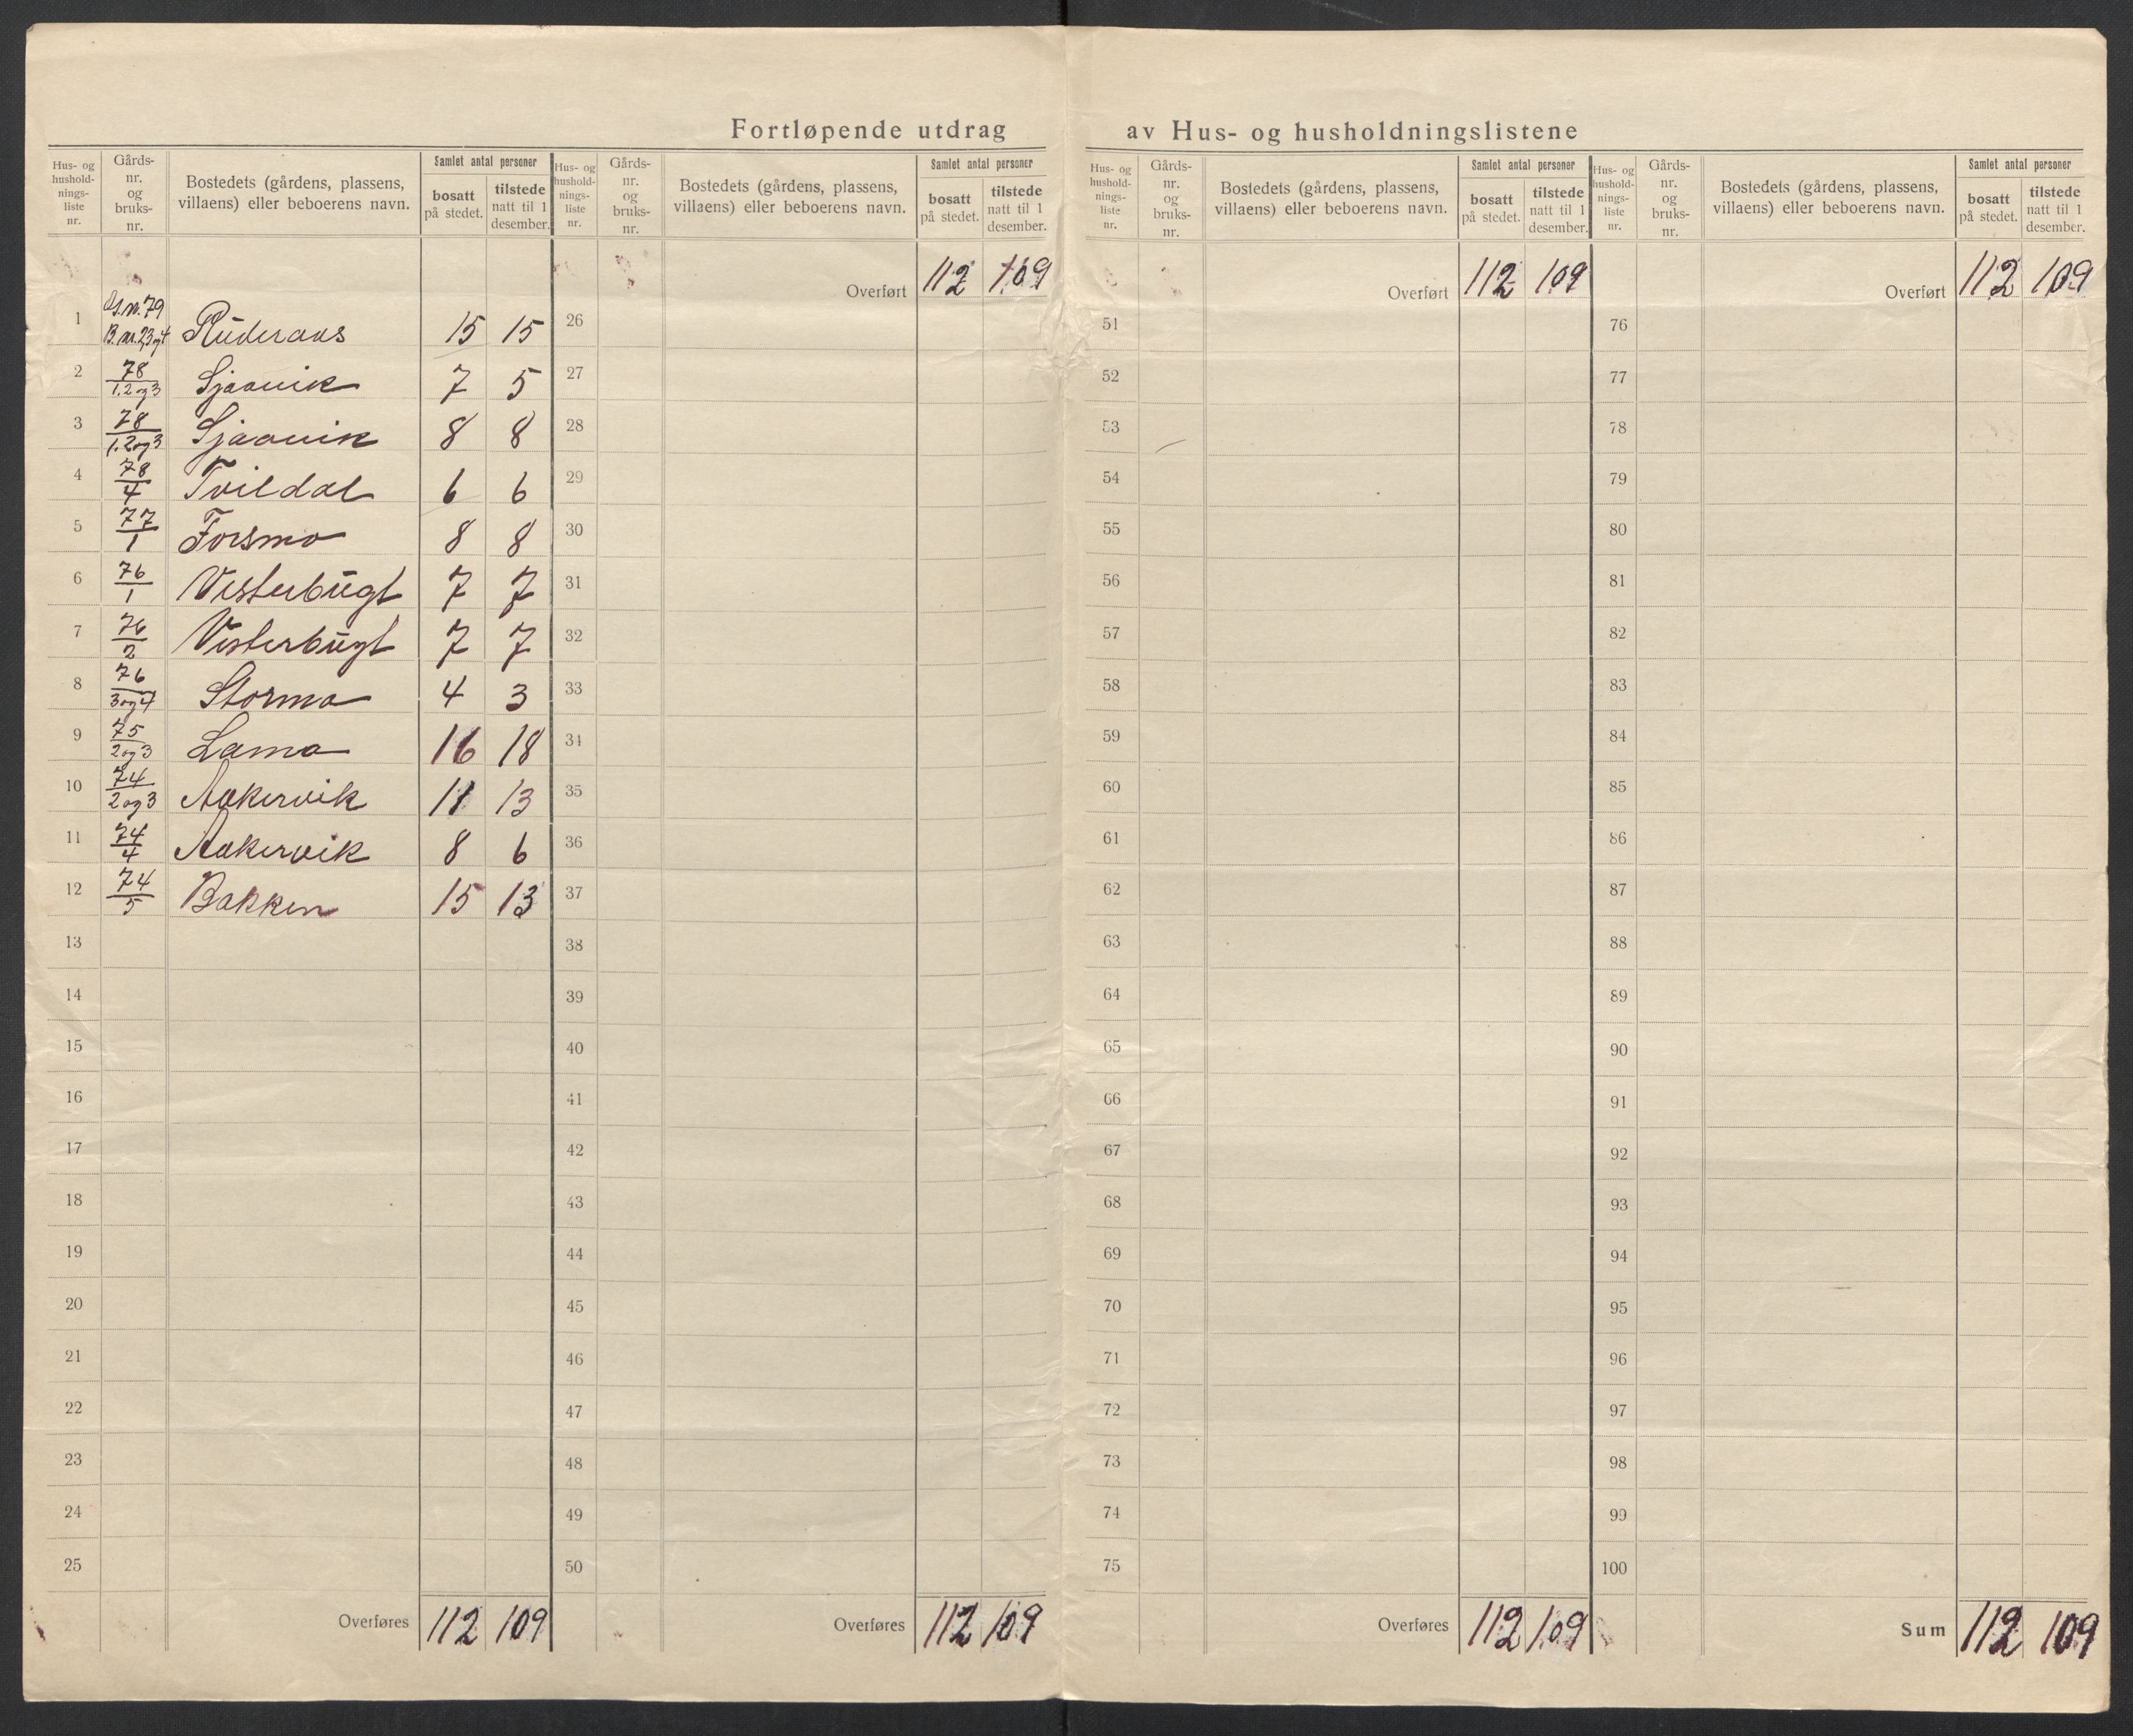 Fortløpende utdrag av Hus- og husholdningslistene
Hus- og husholdningsliste nr. Gårds- nr. og bruks- nr. Bostedets (gårdens, plassens, villaens) eller beboerens navn. Samlet antal personer bosatt på stedet. tilstede natt til 1 desember.
Hus- og husholdningsliste nr. Gårds- nr. og bruks- nr. Bostedets (gårdens, plassens, villaens) eller beboerens navn. Samlet antal personer bosatt på stedet. tilstede natt til 1 desember.
Hus- og husholdningsliste nr. Gårds- nr. og bruks- nr. Bostedets (gårdens, plassens, villaens) eller beboerens navn. Samlet antal personer bosatt på stedet. tilstede natt til 1 desember.
Hus- og husholdningsliste nr. Gårds- nr. og bruks- nr. Bostedets (gårdens, plassens, villaens) eller beboerens navn. Samlet antal personer bosatt på stedet. tilstede natt til 1 desember.
Overført 112 109 Overført 112 109 Overført 112 109
1 G.nr. 79 B.nr. 2,3 og 4 Ruderaas 15 15 26 51 76
2 78/1,2 og 3 Sjaavik 7 5 27 52 77
3 78/1,2 og 3 Sjaavik 8 8 28 53 78
4 78/4 Tvildal 6 6 29 54 79
5 77/1 Forsmo 8 8 30 55 80
6 76/1 Vesterbugt 7 7 31 56 81
7 76/2 Vesterbugt 7 7 32 57 82
8 76/3 og 4 Stormo 4 3 33 58 83
9 75/2 og 3 Lamo 16 18 34 59 84
10 74/2 og 3 Aakervik 11 13 35 60 85
11 74/4 Aakervik 8 6 36 61 86
12 74/5 Bakken 15 13 37 62 87
13 38 63 88
14 39 64 89
15 40 65 90
16 41 66 91
17 42 67 92
18 43 68 93
19 44 69 94
20 45 70 95
21 46 71 96
22 47 72 97
23 48 73 98
24 49 74 99
25 50 75 100
Overføres 112 109 Overføres 112 109 Overføres 112 109 Sum 112 109